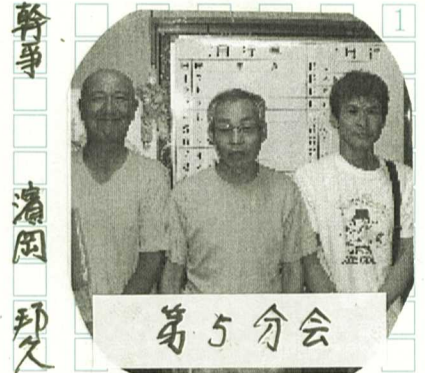 幹事 濱岡 邦久
1
第5分会